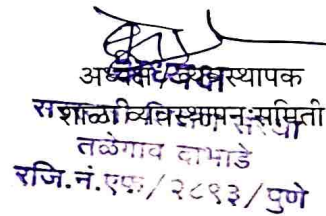 अध्यक्ष व्यवस्थापक
शाळा व्यवस्थापन समिती
संस्था
तळेगाव दाभाडे
रजि.नं.एफ/२८९३/पुणे